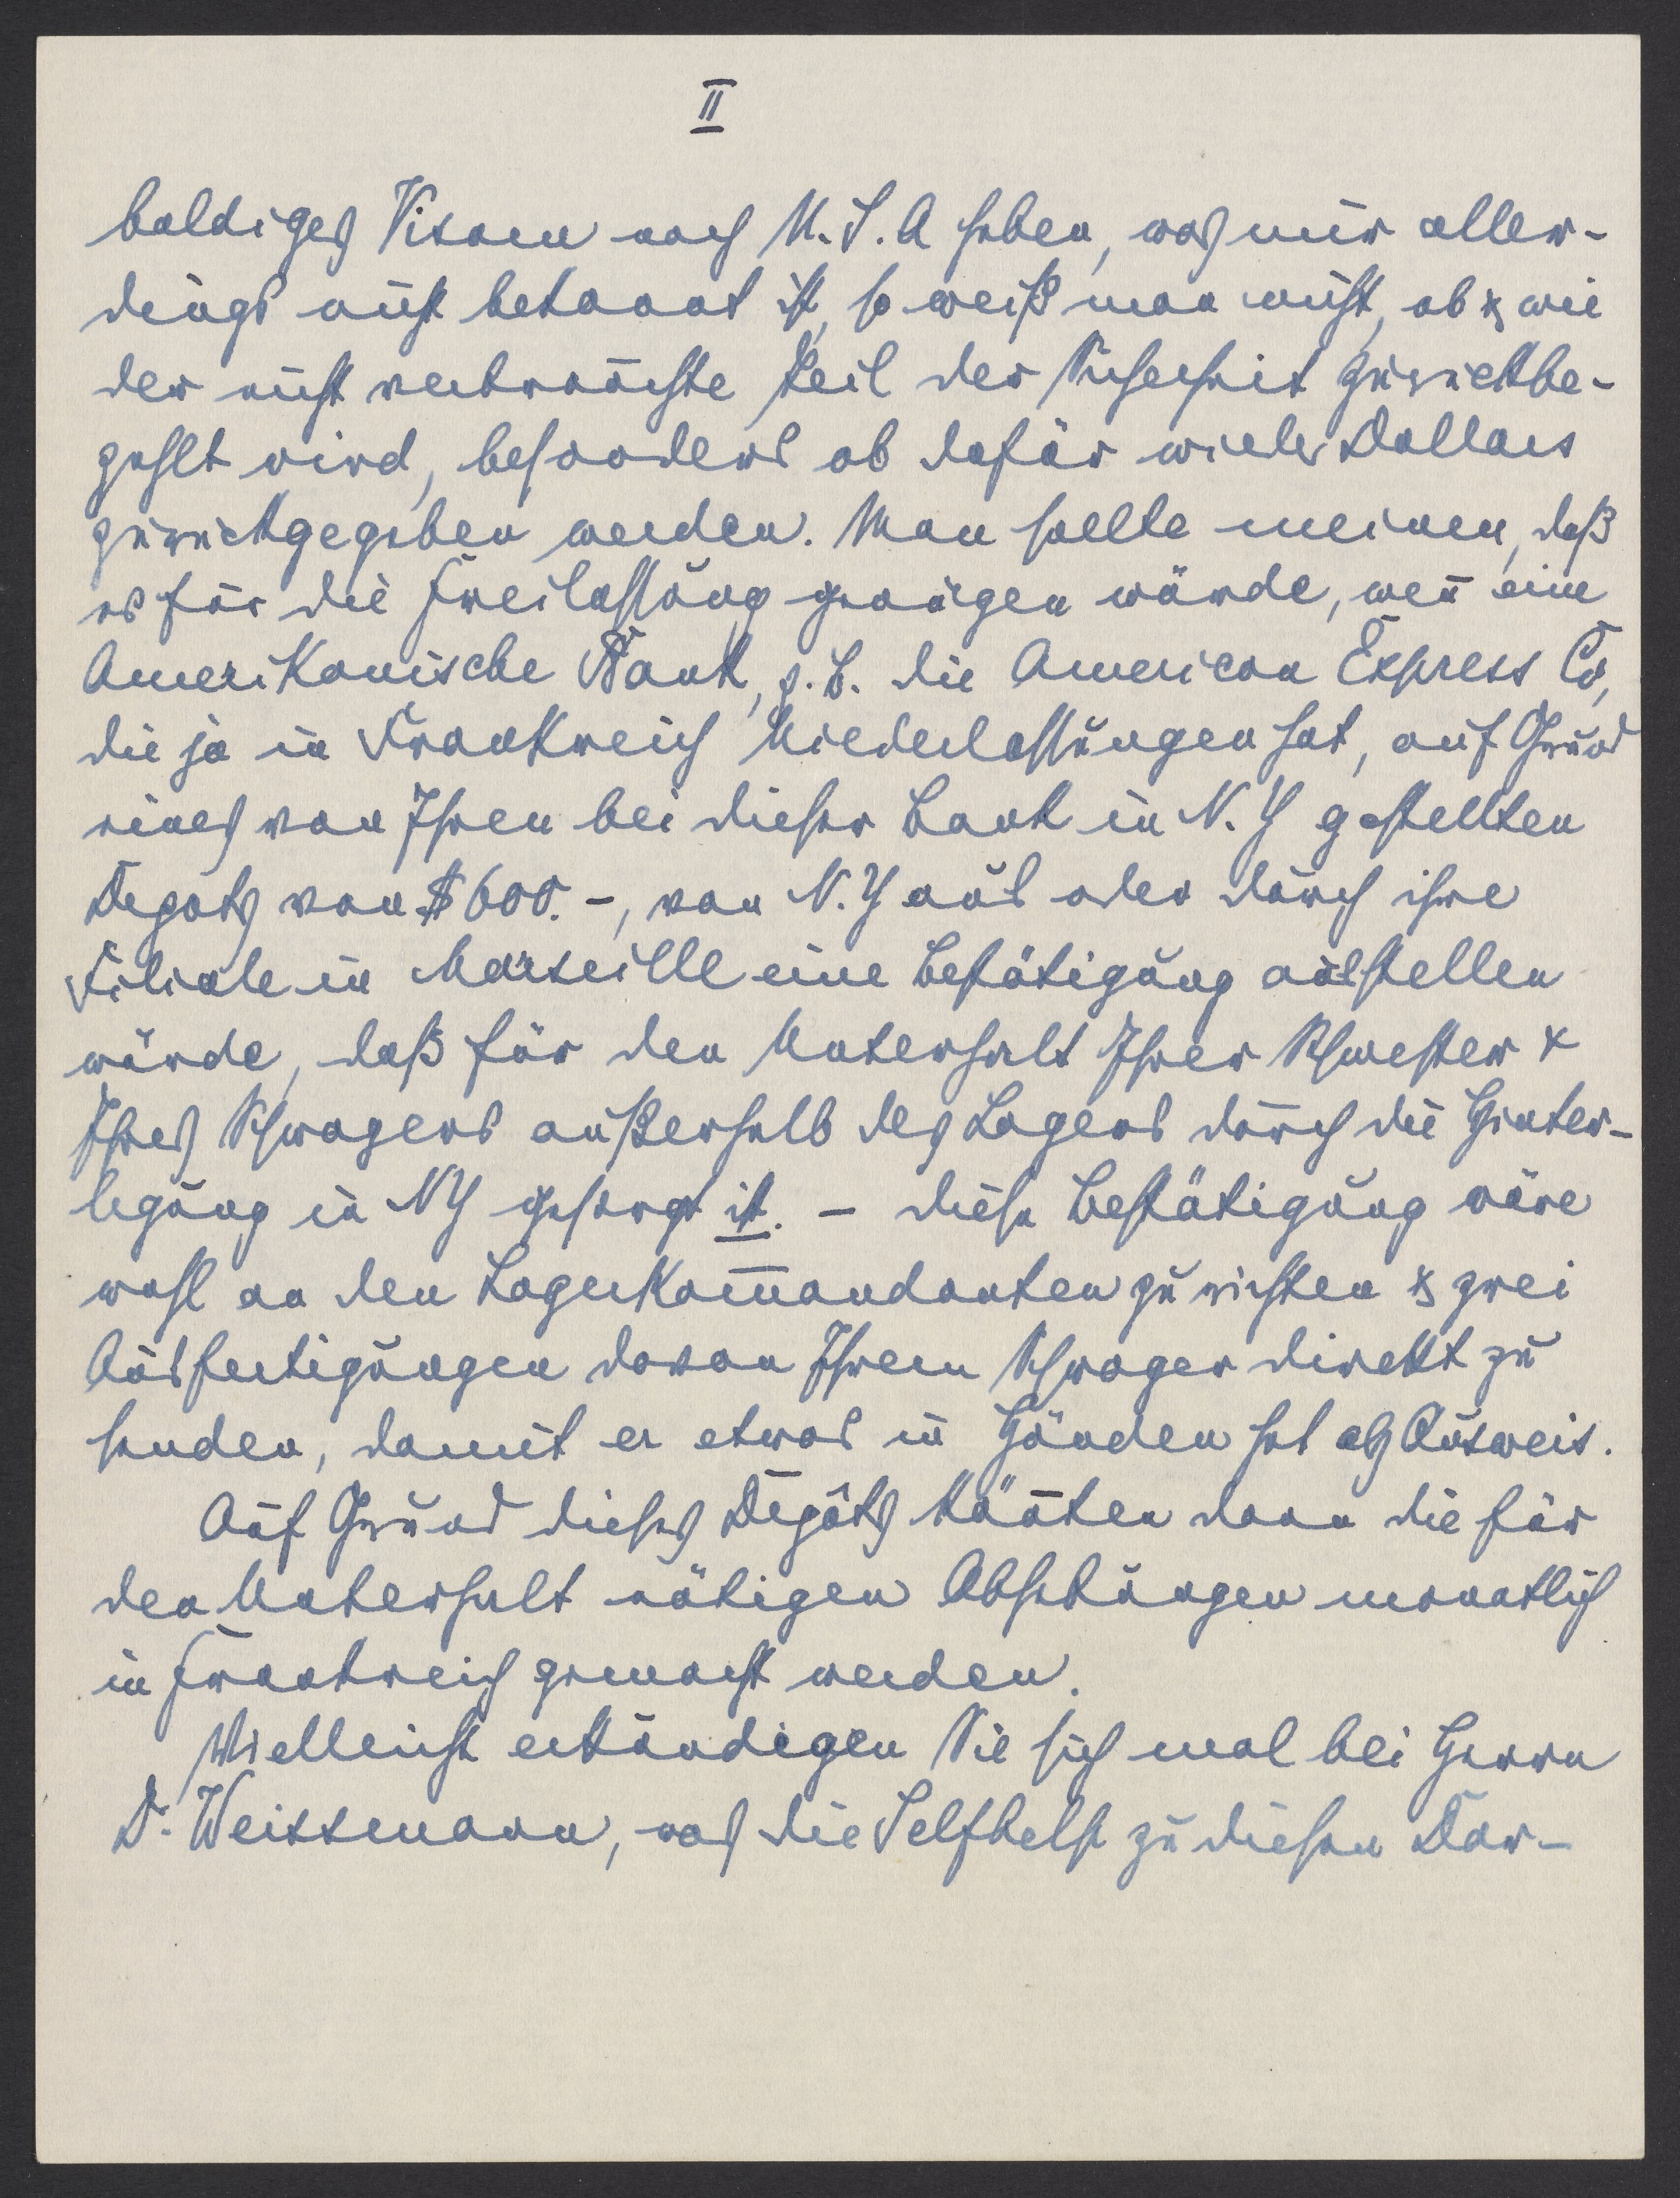 II
baldiges Visum nach U.S.A haben, was mir aller-
dings nicht bekannt ist, so weiß man nicht, ob & wie
der nicht verbrauchte Teil der Sicherheit zurückbe-
zahlt wird, besonders ob dafür wieder Dollars
zurückgegeben werden. Man sollte meinen, daß
es für die Freilassung genügen würde, weñ eine
Amerikanische Bank, z.B. die American Express Co,
die ja in Frankreich Niederlassungen hat, auf Grund
eines von Ihnen bei dieser Bank in N.Y gestellten
Depots von $600.-, von N.Y aus oder durch ihre
Filiale in Marseille eine Bestätigung ausstellen
würde, daß für den Unterhalt Ihrer Schwester &
Ihres Schwagers außerhalb des Lagers durch die Hinter-
legung in NY gesorgt ist. - Diese Bestätigung wäre
wohl an den Lagerkom̄andanten zu richten & zwei
Ausfertigungen davon Ihrem Schwager direkt zu
senden, damit er etwas in Händen hat als Ausweis.
Auf Grund dieses Depôts kön̄ten dann die für
den Unterhalt nötigen Abhebungen monatlich
in Frankreich gemacht werden.
Vielleicht erkundigen Sie sich mal bei Herrn
Dr. Weissmann, was die Selfhelp zu diesem Dar-